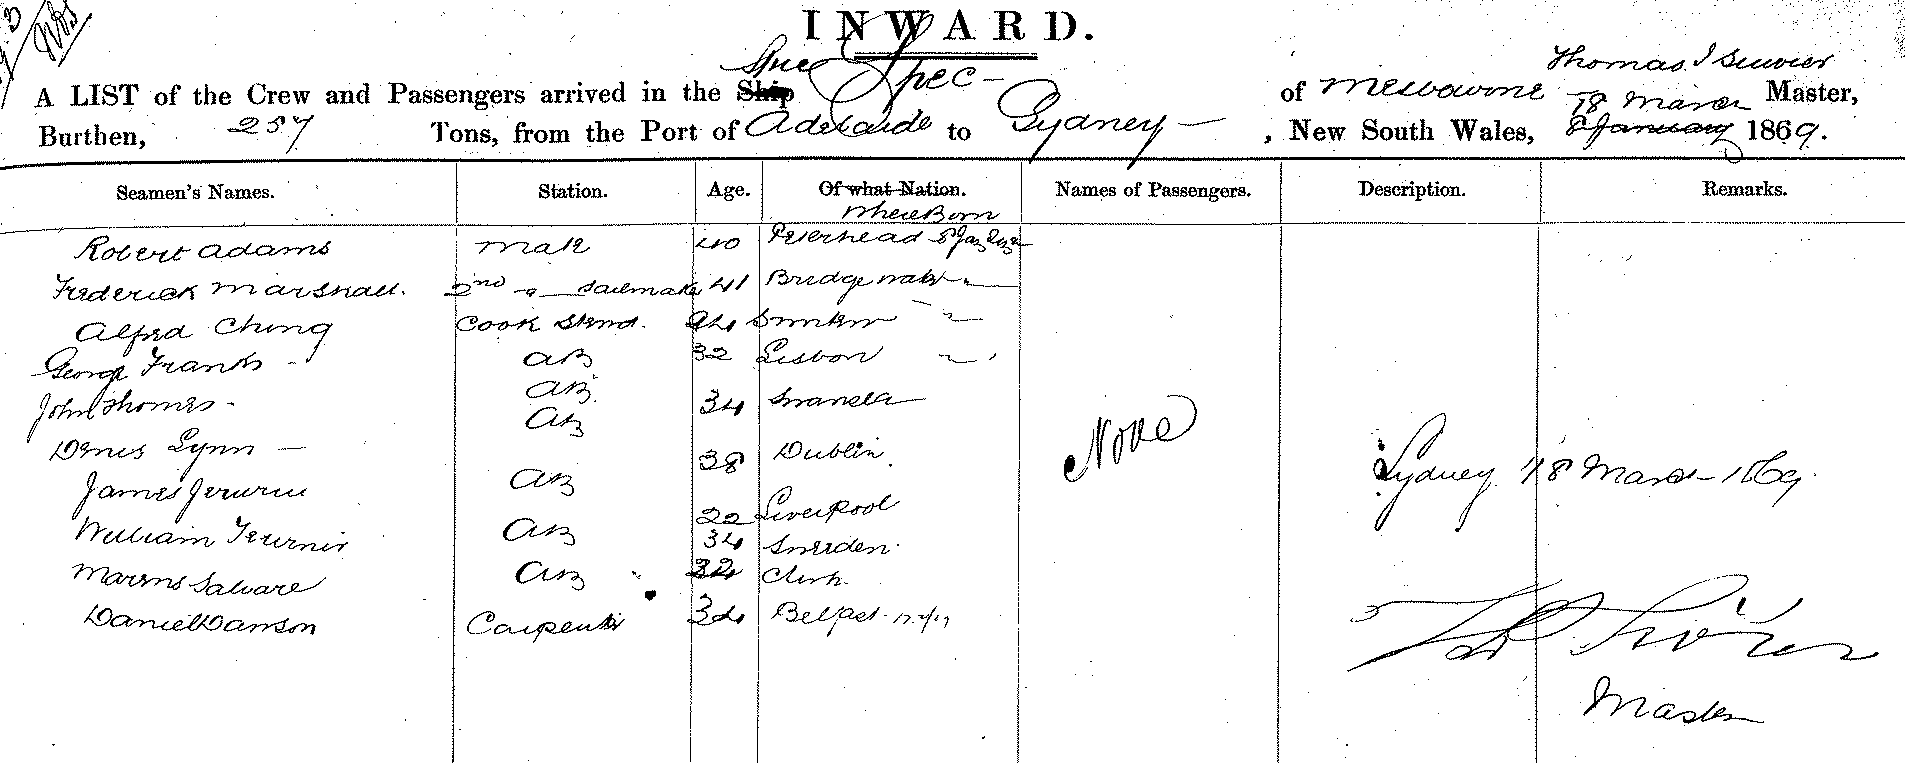 INWARD.
A LIST of the Crew and Passengers arrived in the Spec of Melbourne Thomas Master,
Burthen, 257 Tons, from the Port of Adelaide to Sydney , New South Wales, 18 March 8 January 1869.
Seamen's Names. Station. Age. Of what Nation. Names of Passengers. Description. Remarks.
Where Born
Robert Adams Mate 40 Peterhead
Frederick Marshall. 2nd Sailmaker 41 Bridgewater
Alfred Ching Cook Stewd. 24
George Franks AB 32 Lisbon
John Thomas AB 34 Swansea
Denis Lynn AB 38 Dublin
None
Sydney 18 March 1869
James AB 22 Liverpool
William AB 34 Sweden
AB
Daniel Dawson Carpenter 34 Belfast
Master